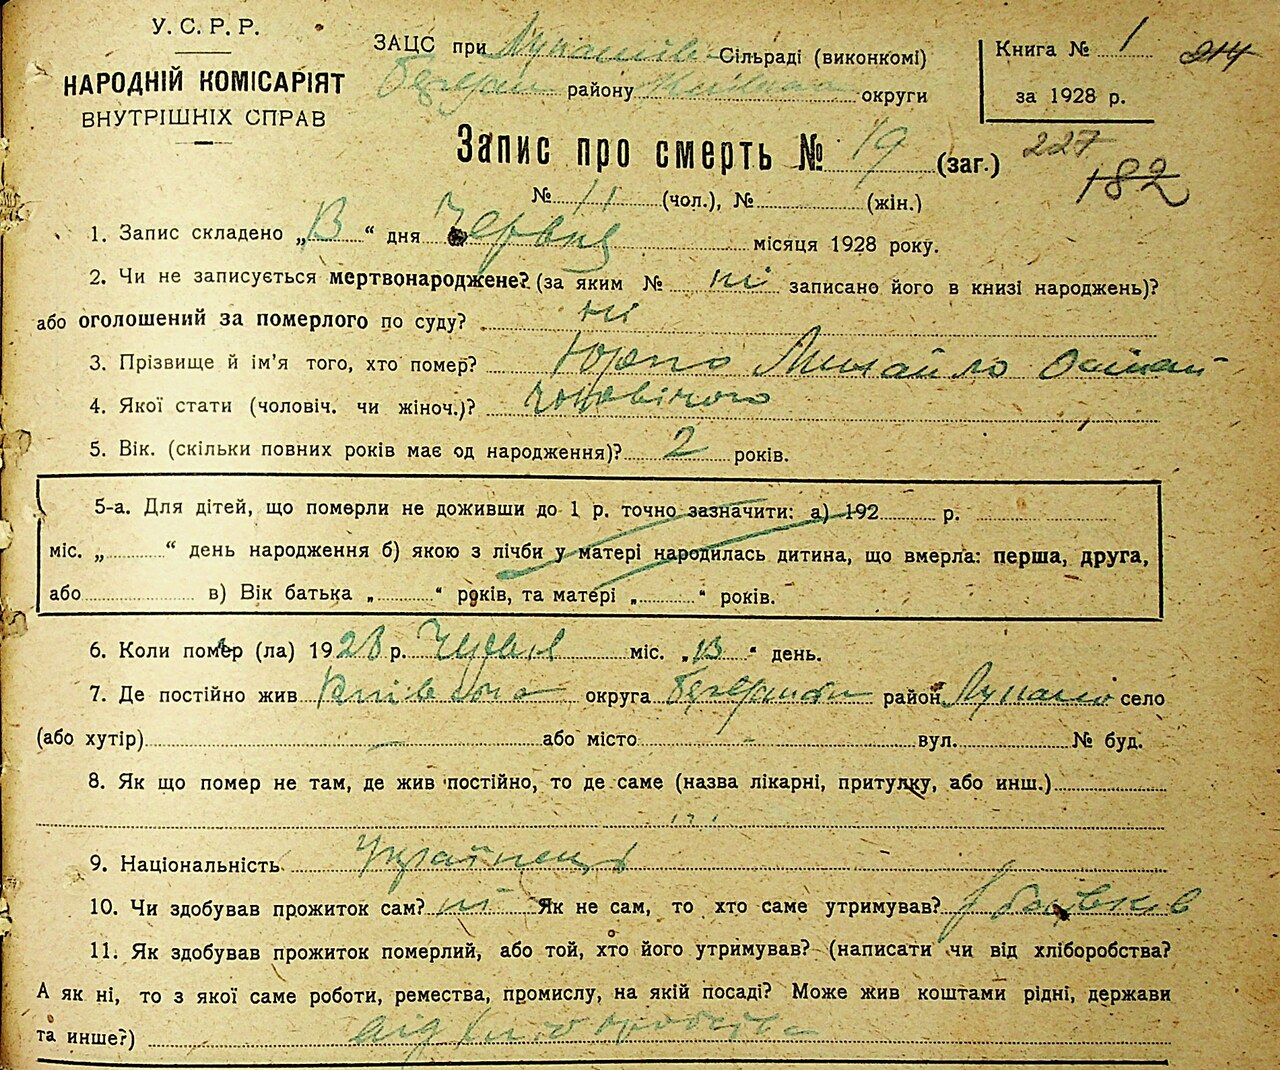 У. С. Р. Р.
НАРОДНІЙ КОМІСАРІЯТ
ВНУТРІШНІХ СПРАВ
ЗАЦС при Сільраді (виконкомі)
району округи
Книга № 1
за 1928 р.
214
227
182
Запис про смерть № 19 (заг.)
№ 11 (чол.), № (жін.)
1. Запис складено „13“ дня Червня місяця 1928 року.
2. Чи не записується мертвонароджене? (за яким № ні записано його в книзі народжень)?
або оголошений за померлого по суду? ні
3. Прізвище й ім'я того, хто помер? Михайло
4. Якої стати (чоловіч. чи жіноч.)? чоловічого
5. Вік. (скільки повних років має од народження)? 2 років.
5-а. Для дітей, що померли не доживши до 1 р. точно зазначити: а) 192 р.
міс. „ “ день народження б) якою з лічби у матері народилась дитина, що вмерла: перша, друга,
або в) Вік батька „ “ років, та матері „ “ років.
6. Коли помер (ла) 1928 р. Червня міс. „13“ день.
7. Де постійно жив Київська округа район село
(або хутір) або місто вул. № буд.
8. Як що помер не там, де жив постійно, то де саме (назва лікарні, притулку, або инш.)
9. Національність Українець
10. Чи здобував прожиток сам? ні Як не сам, то хто саме утримував? батьків
11. Як здобував прожиток померлий, або той, хто його утримував? (написати чи від хліборобства?
А як ні, то з якої саме роботи, ремества, промислу, на якій посаді? Може жив коштами рідні, держави
та инше?) від хліборобства